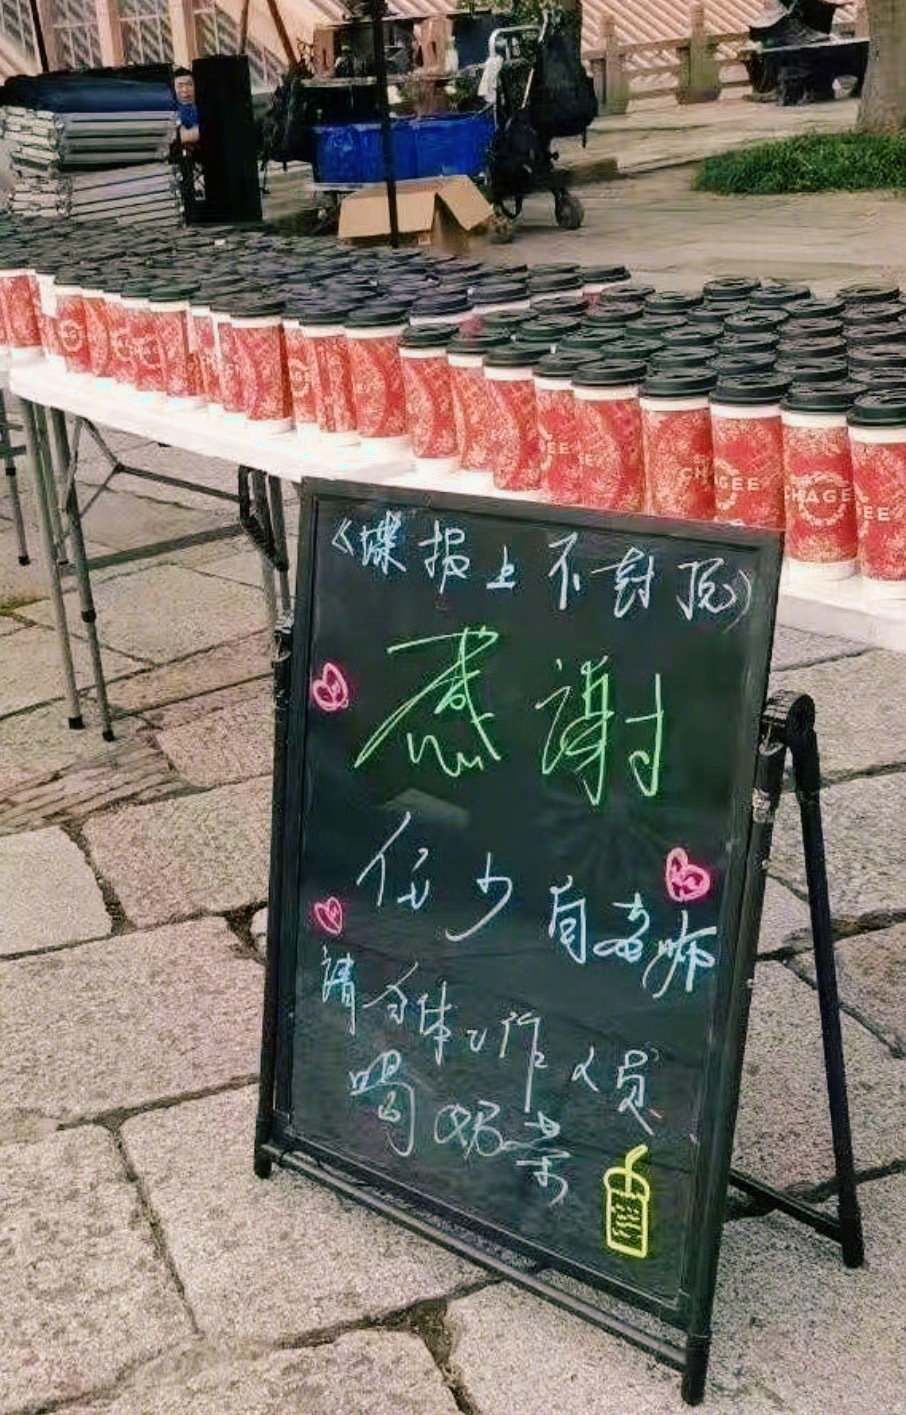 《諜报上不封顶》
感謝
任少白老师
請全体工作人员
喝奶茶
CHAGEE
CHAGEE